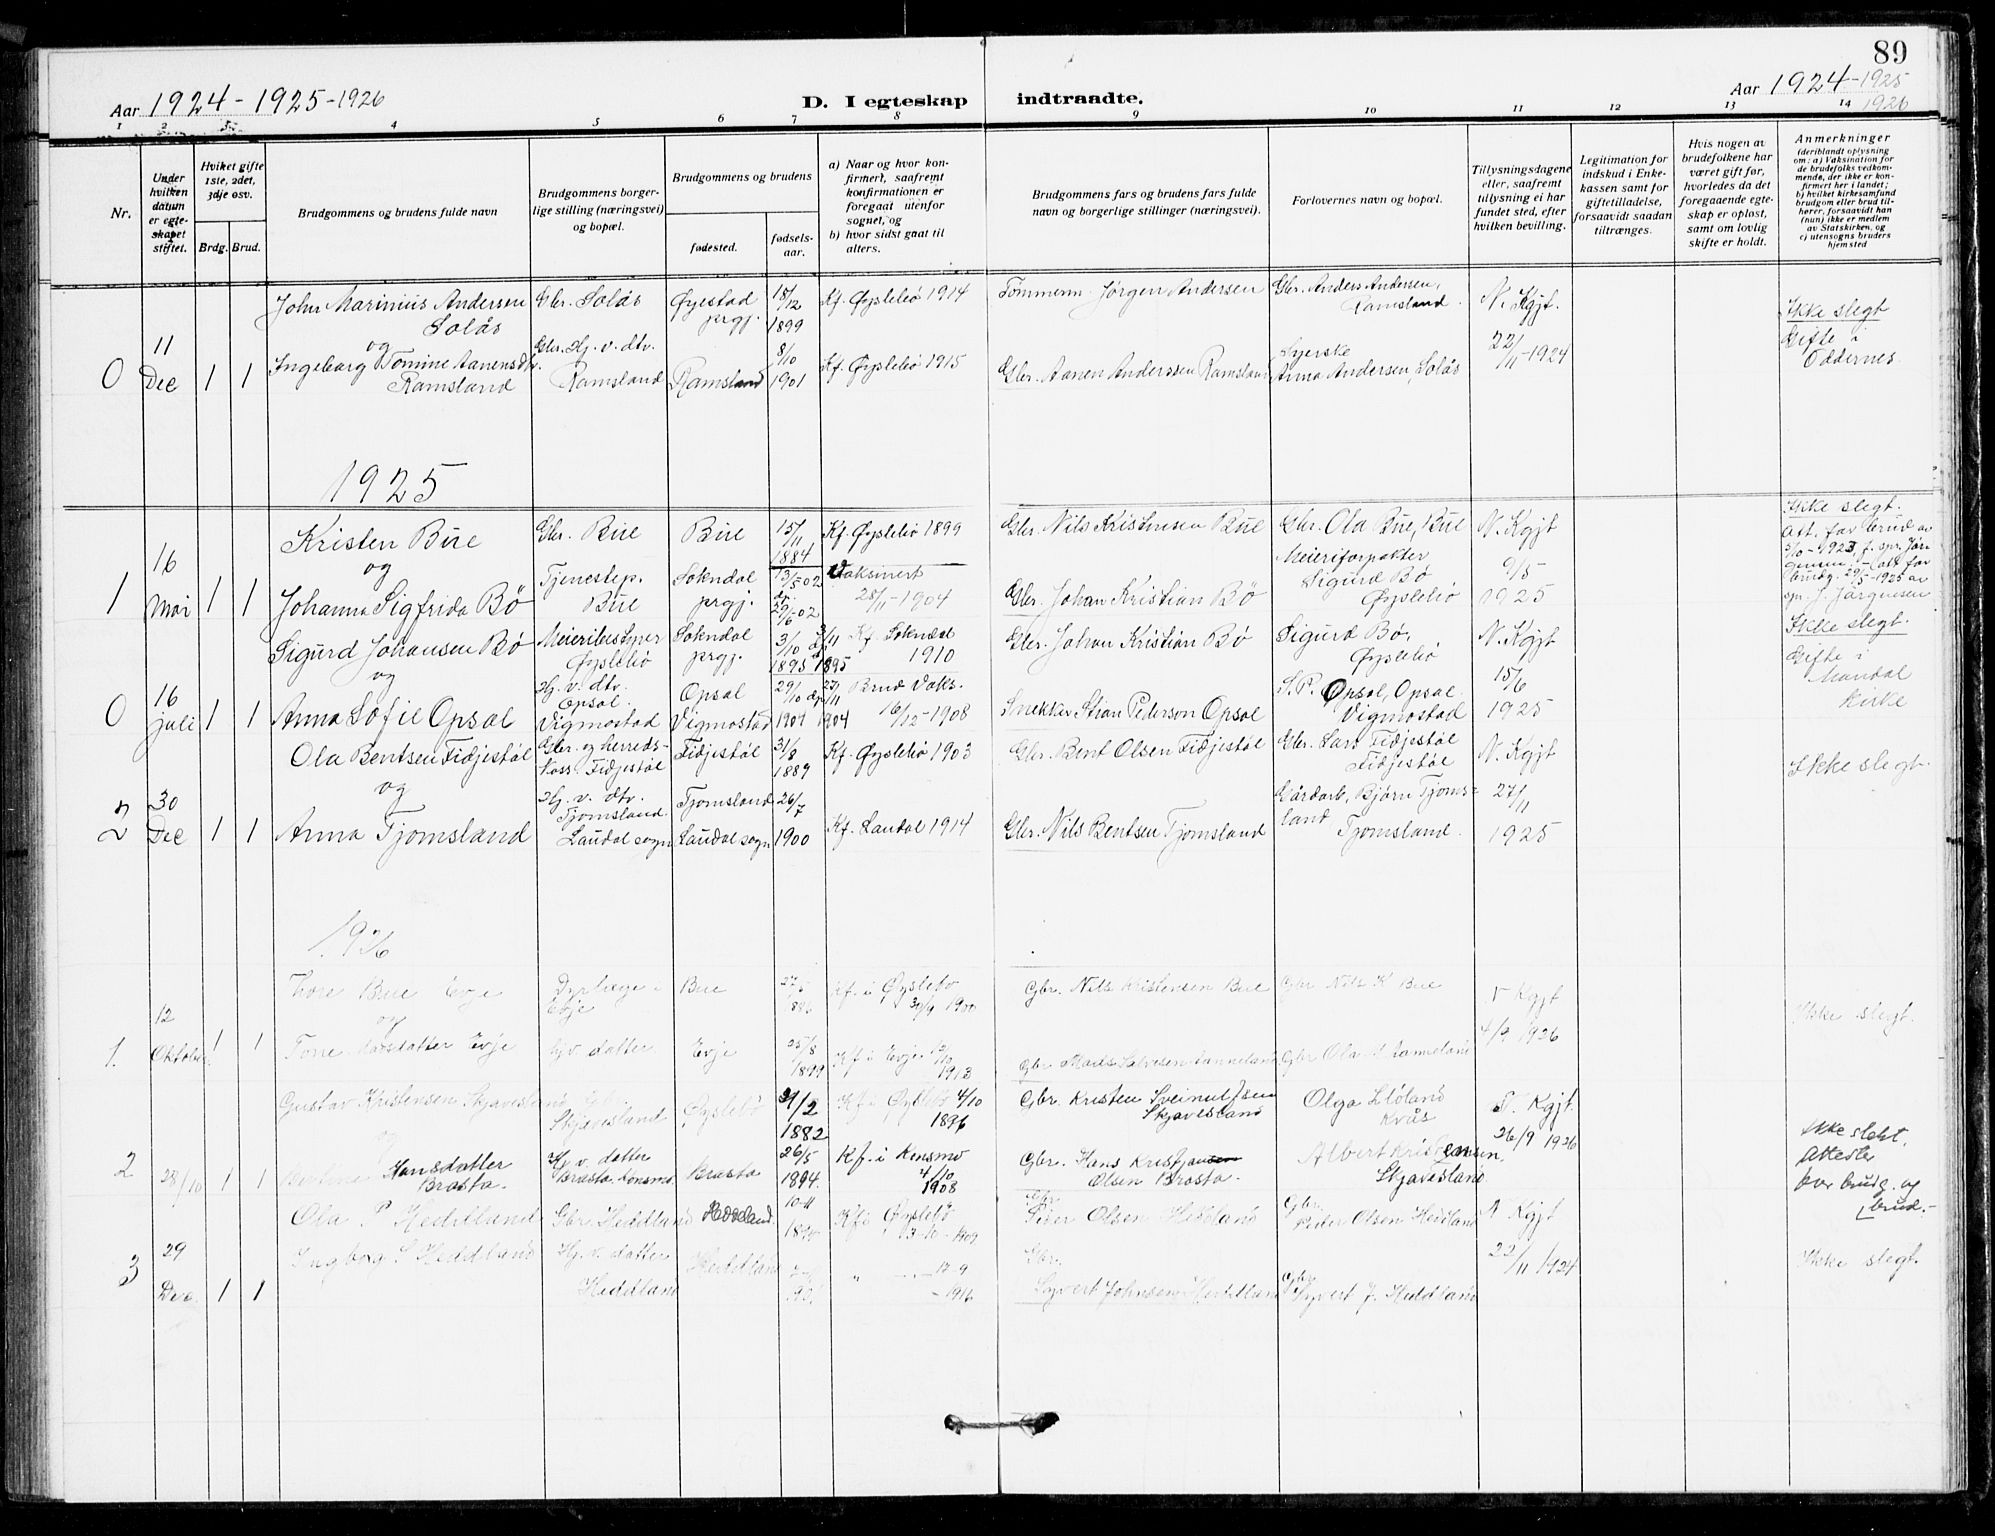 89
Aar 1924-1925-1926
D. I egteskap indtraadte.
Aar 1924-1925
1926
1 2 3 4 5 6 7 8 9 10 11 12 13 14
Nr.
Under hvilken datum er egteskapet stiftet.
Hvilket gifte 1ste, 2det, 3dje osv.
Brdg. Brud.
Brudgommens og brudens fulde navn
Brudgommens borgerlige stilling (næringsvei) og bopæl.
Brudgommens og brudens
fødested.
fødselsaar.
a) Naar og hvor konfirmert, saafremt konfirmationen er foregaat utenfor sognet, og
b) hvor sidst gaat til alters.
Brudgommens fars og brudens fars fulde navn og borgerlige stillinger (næringsvei).
Forlovernes navn og bopæl.
Tillysningsdagene eller, saafremt tillysning ei har fundet sted, efter hvilken bevilling.
Legitimation for indskud i Enkekassen samt for giftetilladelse, forsaavidt saadan tiltrænges.
Hvis nogen av brudefolkene har været gift før, hvorledes da det foregaaende egteskap er opløst, samt om lovlig skifte er holdt.
Anmerkninger
(deriblandt oplysning om: a) Vaksination for de brudefolks vedkommende, der ikke er konfirmert her i landet; b) hvilket kirkesamfund brudgom eller brud tilhører, forsaavidt han (hun) ikke er medlem av Statskirken, og c) utensogns bruders hjemsted
0
11
Dec
1 1
John Marinius Andersen
Solås
og
Ingeborg Tomine Aanensdtr.
Ramsland
Gbr. Solås
Gbr. Hj. v. dtv.
Ramsland
Øyestad
prgj.
Ramsland
18/12
1899
8/10
1901
Kf. Øyslebö 1914
Kf. Øyslebö 1915
Tömmerm. Jörgen Andersen
Gbr. Aanen Anderssen Ramsland
Gbr. Anders Andersen,
Ramsland.
Syerske
Anna Andersen, Solås
N. Kgjt.
22/11-1924
Ikke slegt
Gifte i
Oddernes.
1925
1
16
Mai
1 1
Kristen Bue
og
Johanna Sigfrida Bö
Gbr. Bue
Tjenestep.
Bue
Bue
Sokndal
prgj.
15/11
1884
13/5 02
dp.
29/6 02
Kf. Øyslebö 1899
Vaksinert
28/11-1904
Gbr. Nils Kristensen Bue
Gbr. Johan Kristian Bö
Gbr. Ola Bue, Bue
Meieriforpakter
Sigurd Bö
Øyslebö
N. Kgjt
9/5
1925
Ikke slegt.
Att. for brud av
5/10-1923, f. spr. Jör-
gensen. - Att for
brudg. 29/5-1925 av
spr. J. Jörgensen
0
16
juli
1 1
Sigurd Johansen Bö
og
Anna Sofie Opsal
Meieribestyrer
Øyslebö
Hj. v. dtv.
Opsal.
Vigmostad
Sokndal
prgj.
Opsal
Vigmostad
3/10 dp 3/11
1895 1895
29/10 dp 27/11
1904 1904
Kf. Sokndal
1910
Brud Vaks.
16/12-1908
Gbr. Johan Kristian Bö
Snekker Stian Pederson Opsal
Sigurd Bö,
Øyslebö
S. P. Opsal, Opsal.
Vigmostad
N. Kgjt
15/6
1925
Ikke slegt.
Gifte i
Mandal
kirke
2
30
Dec
1 1
Ola Bentsen Fidjestöl
og
Anna Tjomsland
Gbr. og herreds-
kass. Fidjestöl
Hj. v. dtv.
Tjomsland
Laudal sogn
Fidjestöl
Tjomsland
Laudal sogn
31/8
1889
26/7
1900
Kf. Øyslebö 1903
Kf. Laudal 1914
Gbr. Bent Olsen Fidjestöl
Gbr. Nils Bentsen Tjomsland
Gbr. Lars Fidjestöl
Fidjestöl
Gårdarb. Bjørn Tjoms-
land
Tjomsland.
N. Kgjt
27/11
1925
Ikke slegt.
1926
1.
12
Oktober
1 1
Tore Bue Evje
og
Tone Madsdatter Evje
Dyrlæge i
Evje
hjv. datter
Bue
Evje
27/5
1886
25/8
1899
Kf. i Øyslebø
30/9 1900
Kf. i Evje 12/10
1913
Gbr. Nils Kristensen Bue
Gbr Mads Salvesen
Gbr Nils K Bue
Gbr Ola
N Kgjt
4/9 1926
Ikke slegt.
2
28/10
1 1
Gustav Kristensen Skjavesland
og
Hansdatter
Brasta.
Gbr.
Skjavesland
Hj. v. datter
Brasta. Konsmo
Øyslebö
Brasta
21/2
1882
26/5
1894.
Kf i Øyslebö 4/10
1896
Kf. i Konsmo
4/10
1908
Gbr. Kristen Sveinulfsen
Skjavesland
Gbr. Hans Kristjansen
Olsen Brasta.
Olga Löland
Kvås
Albert Kristensen.
Skjavesland
N. Kgjt.
26/9 1926
Ikke slekt.
Atteste
for brudg. og
brud.-
3
29
Dec.
1 1
Ola P Heddland
Ingborg S Heddland
Gbr. Heddland
Hj. v. datter
Heddland
Heddland.
Heddland
10-11
Kf i Øyslebö
13-10-1909
" 17-9
-1916
Gbr.
Peder Olsen Heddland
Gbr.
Syvert Johnsen Heddland
Gbr.
Peder Olsen Heddland
Gbr.
Syvert J. Heddland
N Kgjt
22/11 1924
Ikke slegt.